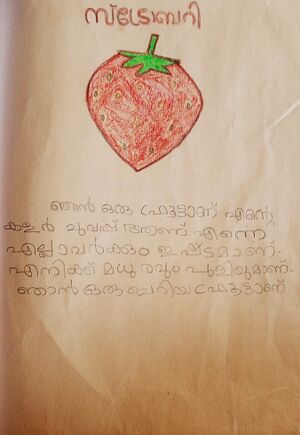 സ്ട്രോബെറി
ഞാൻ ഒരു ഫ്രൂട്ടാണ് എൻ്റെ
കളർ ചുവപ്പ് ആണ് എന്നെ
എല്ലാവർക്കും ഇഷ്ടമാണ്.
എനിക്ക് മധുരവും പുളിയുമാണ്.
ഞാൻ ഒരു ചെറിയ ഫ്രൂട്ടാണ്